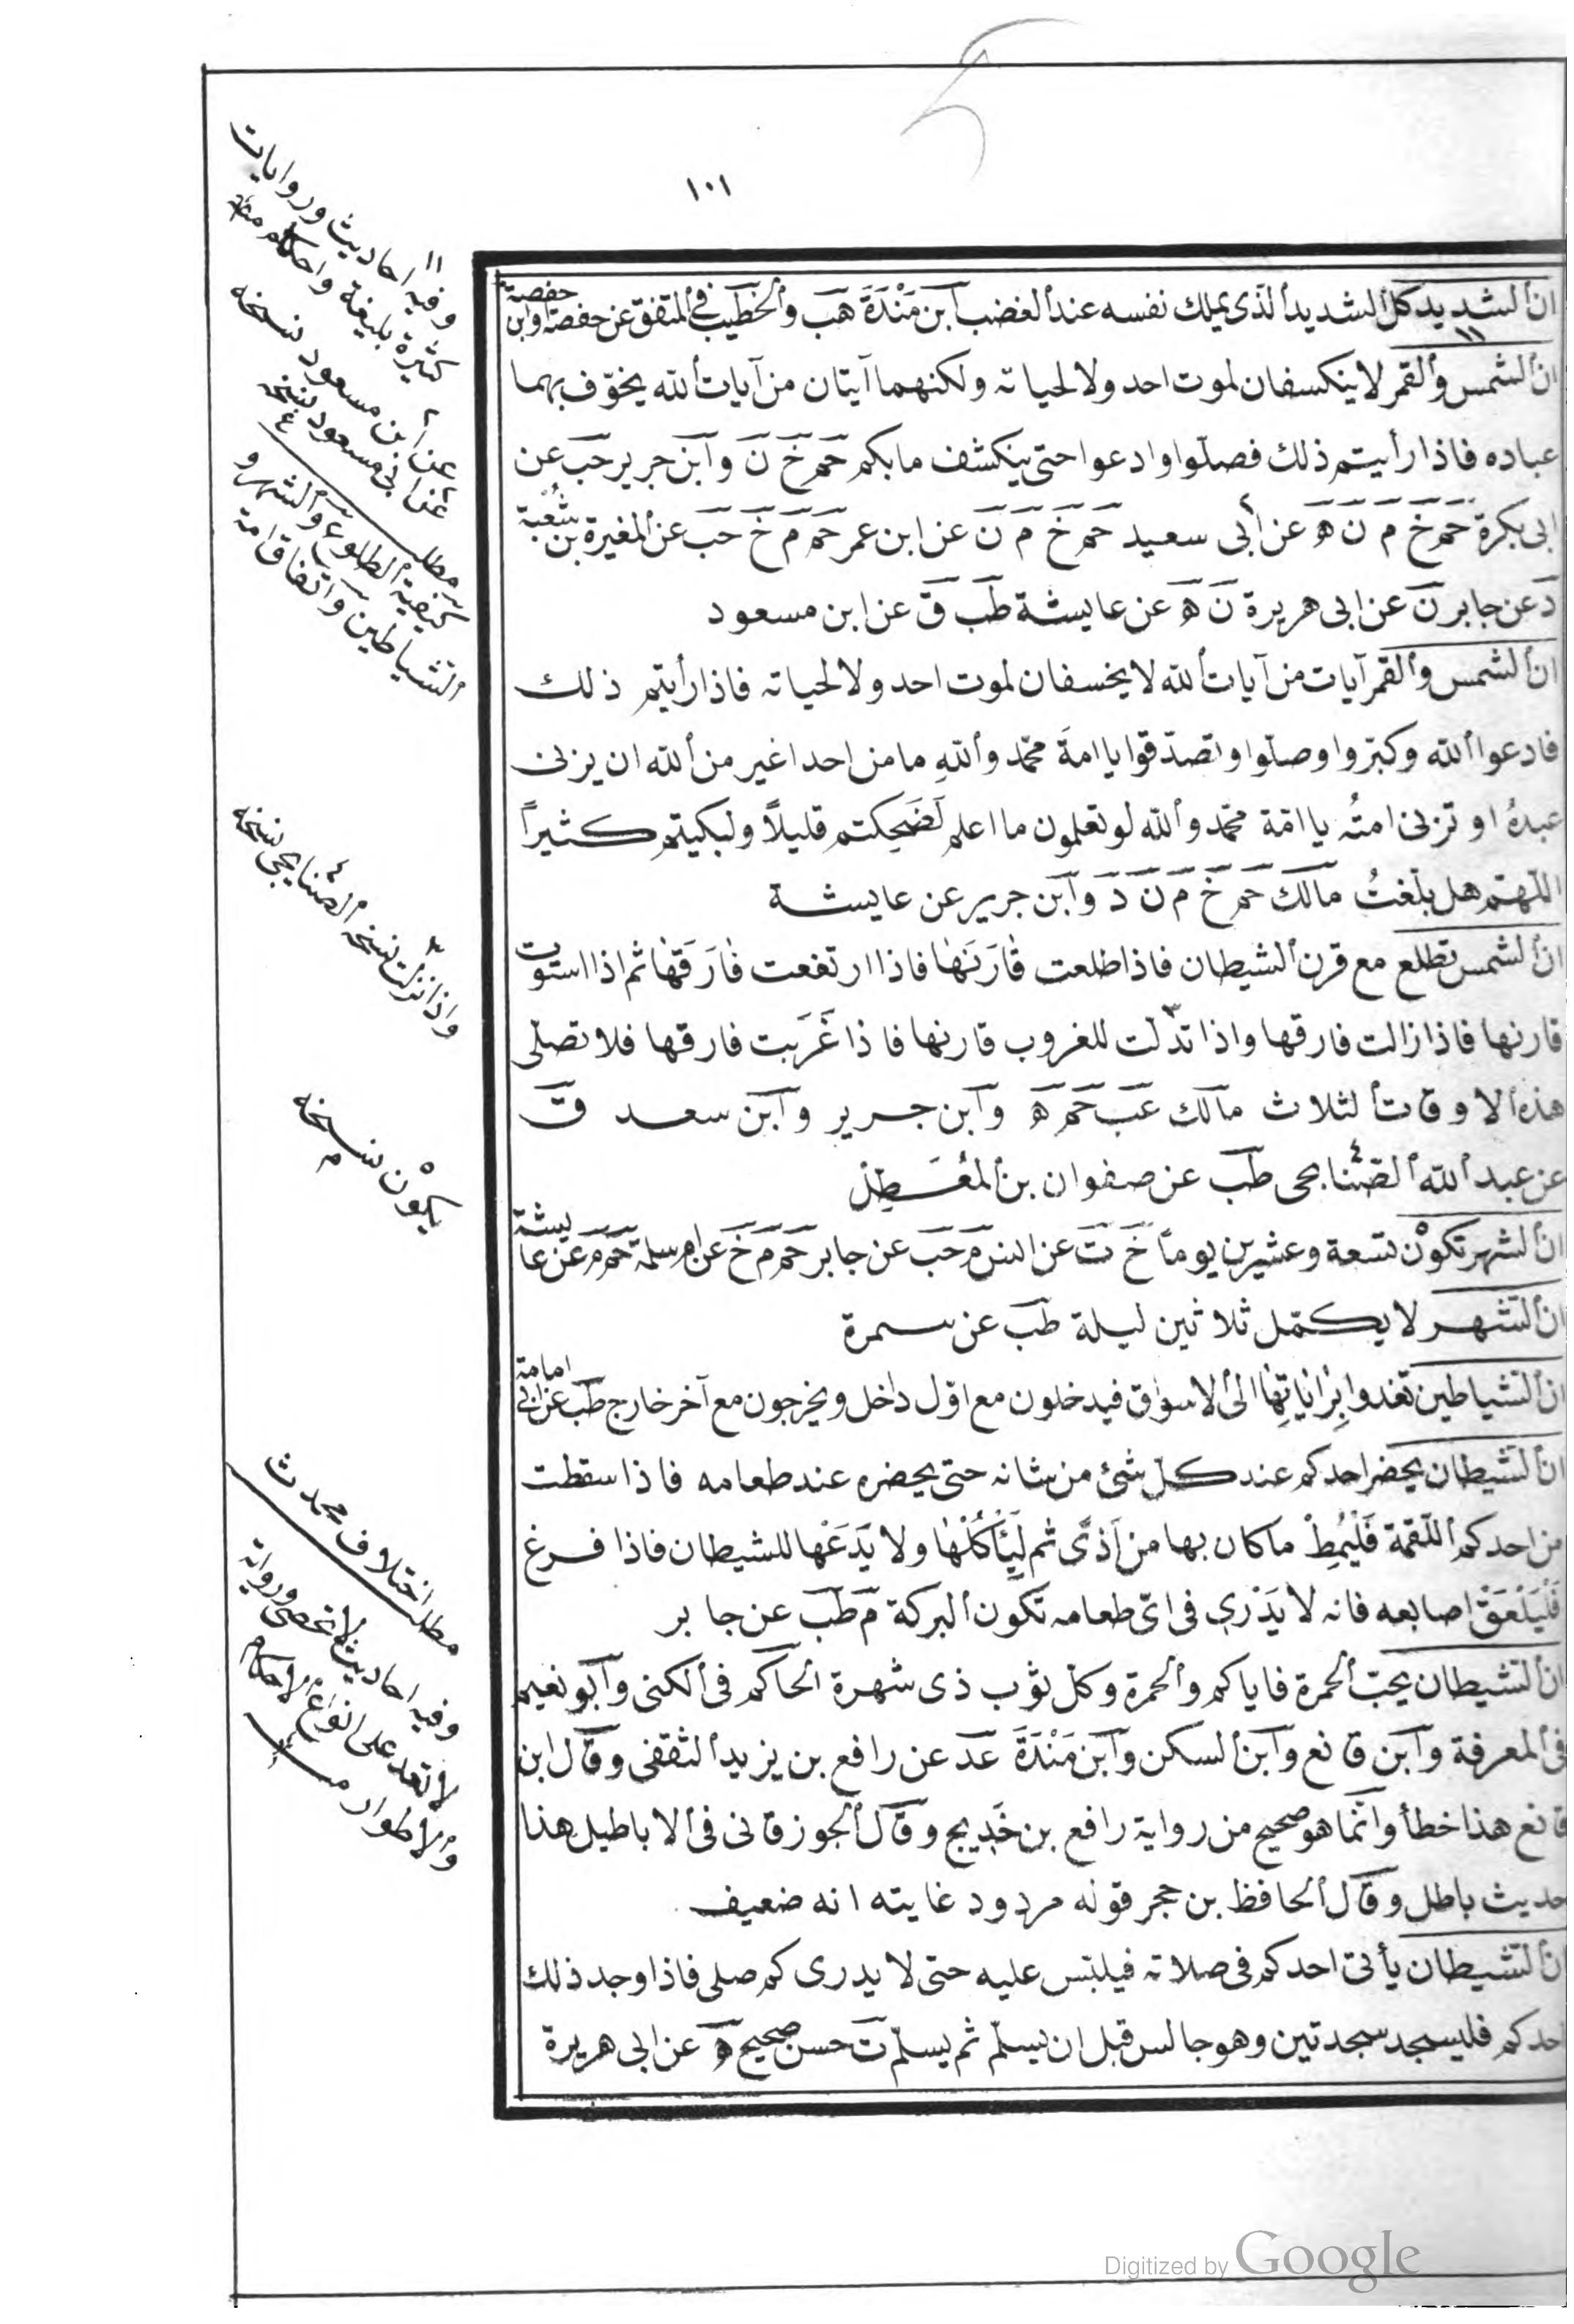 ١٠١
ان الشديد كل الشديد الذى يملك نفسه عند الغضب ابن مَنْدَةَ هب والخطيب فى المتفق عن حفصة او ابن حفصة
ان الشمس والقمر لا ينكسفان لموت احد ولا لحياته ولكنهما آيتان من آيات الله يخوّف بهما
عباده فاذا رأيتم ذلك فصلّوا وادعوا حتى ينكشف ما بكم حم خ ن وابن جرير حب عن
ابى بكرة حم خ م ن ه عن ابى سعيد حم خ م ن عن ابن عمر حم م خ حب عن المغيرة بن شُعْبة
د عن جابر ن عن ابى هريرة ن ه عن عايشة طب ق عن ابن مسعود
ان الشمس والقمر آيات من آيات الله لا يخسفان لموت احد ولا لحياته فاذا رأيتم ذلك
فادعوا الله وكبّروا وصلّوا وتصدّقوا يا امةَ محمّد واللهِ ما من احد اغير من الله ان يزنى
عبدهُ او تزنى امتُه يا امّة محمّد والله لو تعلمون ما اعلم لَضَحِكتم قليلاً ولبكيتم كثيراً
اللّهمّ هل بلّغتُ مالك حم خ م ن د وابن جرير عن عايشة
ان الشمس تطلع مع قرن الشيطان فاذا طلعت قارَنَها فاذا ارتفعت فارَقَها ثم اذا استوت
قارنها فاذا زالت فارقها واذا تدلّت للغروب قارنها فاذا غَرَبت فارقها فلا تصلّى
هذه الاوقات الثلاث مالك عب حم ه وابن جرير وابن سعد ق
عن عبد الله الصّنابحى طب عن صفوان بن المُعَسطِل
ان الشهر تكوْن تسعة وعشرين يوماً خ ت عن انس م حب عن جابر حم م خ عن ام سلمة حم م عن عايشة
ان الشهر لا يكمّل ثلاثين ليلة طب عن سمرة
ان الشياطين تغدوا بِرَاياتِها الى الاسواق فيدخلون مع اوّل داخل ويخرجون مع آخر خارج طب عن ابى امامة
ان الشيطان يحضر احدكم عند كلّ شئ من شانه حتى يحضره عند طعامه فاذا سقطت
من احدكم اللّقمة فَلْيُمِطْ ما كان بها من اَذىً ثم لْيَأكُلْها ولا يَدَعْها للشيطان فاذا فرغ
فَلْيَلْعَقْ اصابعه فانه لا يَدْرى فى اىّ طعامه تكون البركة م طب عن جابر
ان الشيطان يحبّ الحمرة فاياكم والحمرة وكلّ ثوب ذى شهرة الحاكم فى الكنى وابو نعيم
فى المعرفة وابن قانع وابن السكن وابن مَنْدَةَ عد عن رافع بن يزيد الثقفى وقال ابن
قانع هذا خطأ وانّما هو صحيح من رواية رافع بن خَدِيج وقال الجوزقانى فى الاباطيل هذا
حديث باطل وقال الحافظ بن حجر قوله مردود غايته انه ضعيف
ان الشيطان يأتى احدكم فى صلاته فيلبّس عليه حتى لا يدرى كم صلى فاذا وجد ذلك
احدكم فليسجد سجدتين وهو جالس قبل ان يسلّم ثم يسلّم ت حسن صحيح ه عن ابى هريرة
١١ وفيه احاديث وروايات
كثيرة بليغة واحكام
عن ابن مسعود نسخه
عن ابى مسعود نسخه
مطلب
كيفية الطلوع والشهر و
الشياطين واتفاق امة
واذا نزلت نسخه الصّنابحى نسخه
يكوْن نسخه م
مطلب اختلاف محمد ث
وفيه احاديث لا تحصى ورواية
لا تعد على انواع الاحكام
والاطوار
Digitized by Google